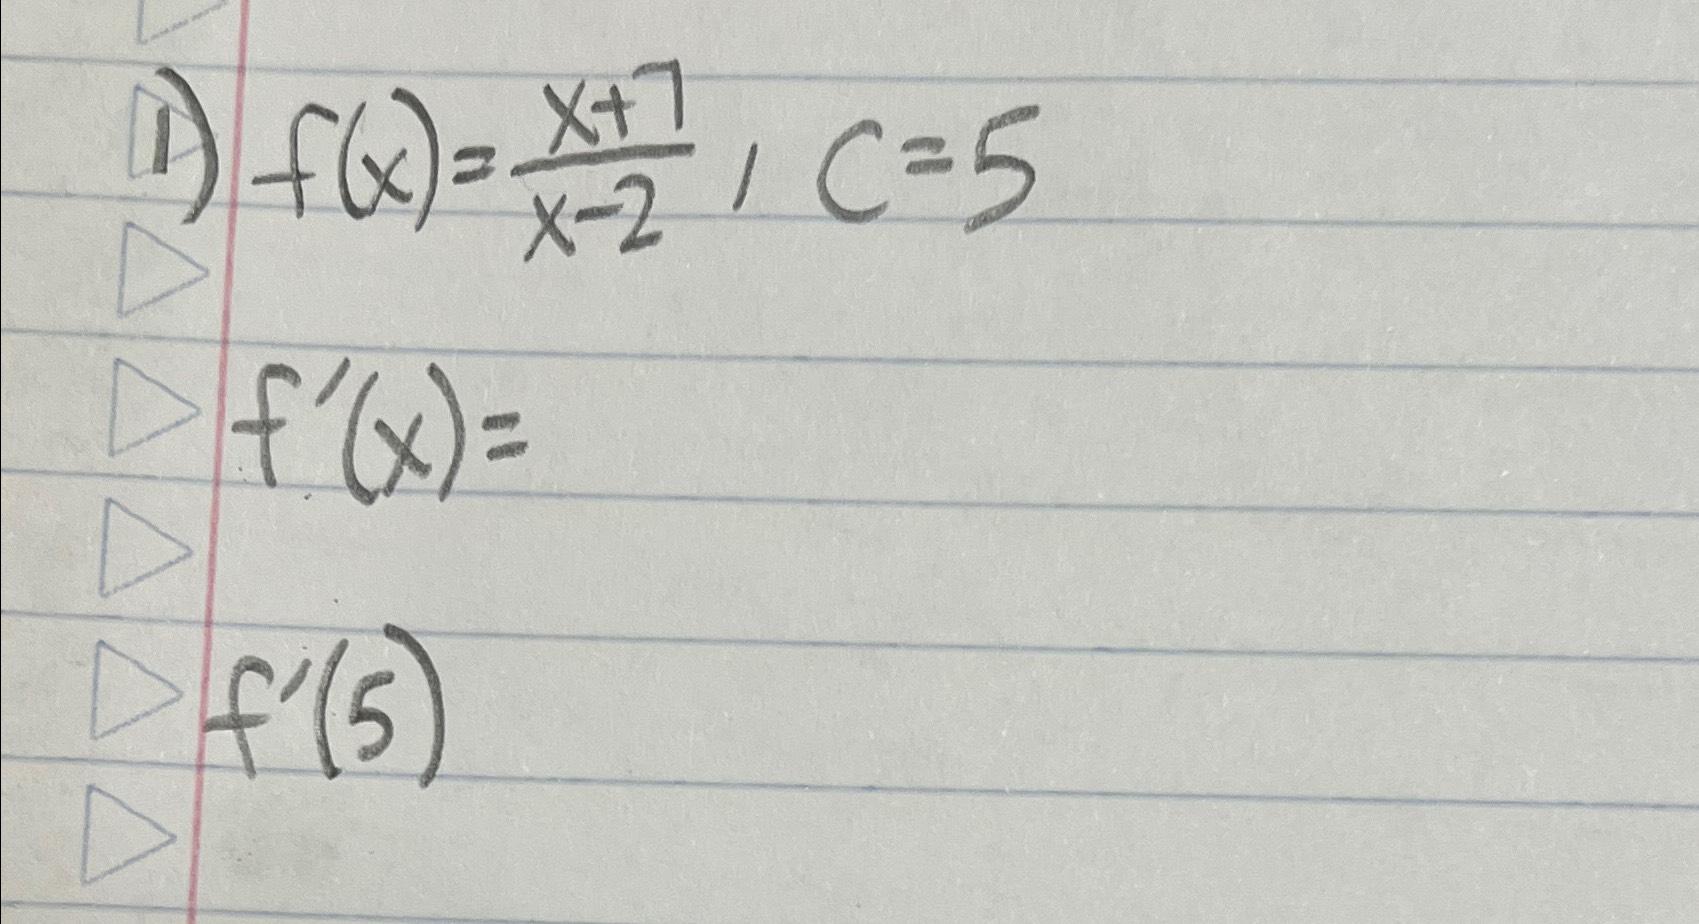 1) f(x) = \frac{x+7}{x-2}, C = 5
f'(x) =
f'(5)